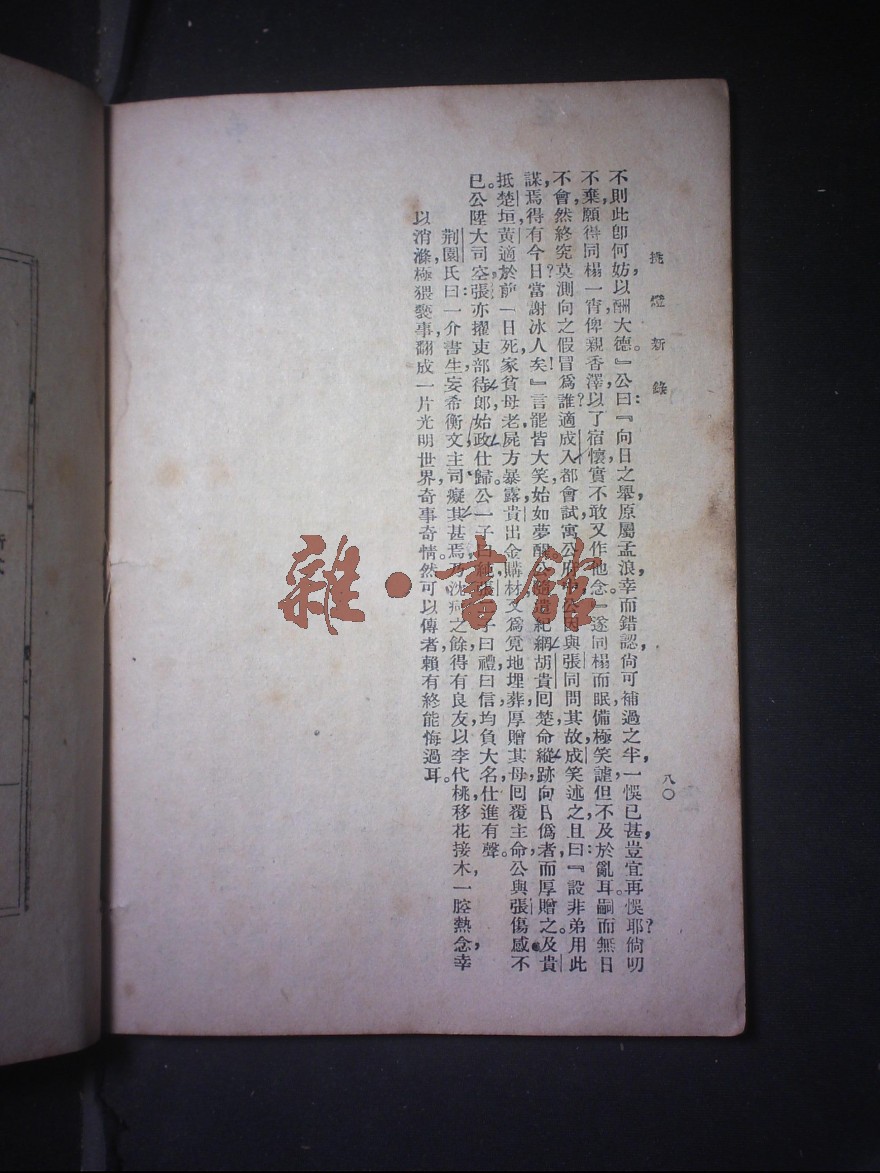 挑燈新錄
八〇
不則此卽何妨，以酬大德。』公曰：『向日之舉，原屬孟浪，幸而錯認，尙可補過之半，一悞已甚，豈宜再悞耶？倘叨
不棄，願得同榻一宵，俾親香澤，以了宿懷，實不敢又作他念。』遂同榻而眠，備極笑謔，但不及於亂耳。嗣而無日
不會，然終究莫測向之假冒爲誰？適成入都會試，寓公府中，公因與張同問其故，成笑述之，且曰：『設非弟用此
謀，焉得有今日？當謝冰人矣！』言罷皆大笑，始如夢醒。公隨遣紀綱胡貴回楚，命縱跡向日僞者，而厚贈之。及貴
抵楚垣，黃適於前一日死，家貧母老，屍方暴露，貴出金購材，又爲覓地埋葬，厚贈其母，回覆主命，公與張傷感不
已。公陞大司空，張亦擢吏部待郎，始政仕歸。公一子曰純，張二子曰禮，曰信，均負大名，仕進有聲。
荆園氏曰：一介書生，妄希衡文主司，癡其甚焉，乃沈痾之餘，得有良友，以李代桃，移花接木，一腔熱念，幸
以消滌，極猥褻事，翻成一片光明世界，奇事奇情，然可以傳者，賴有終能悔過耳。
雜·書館